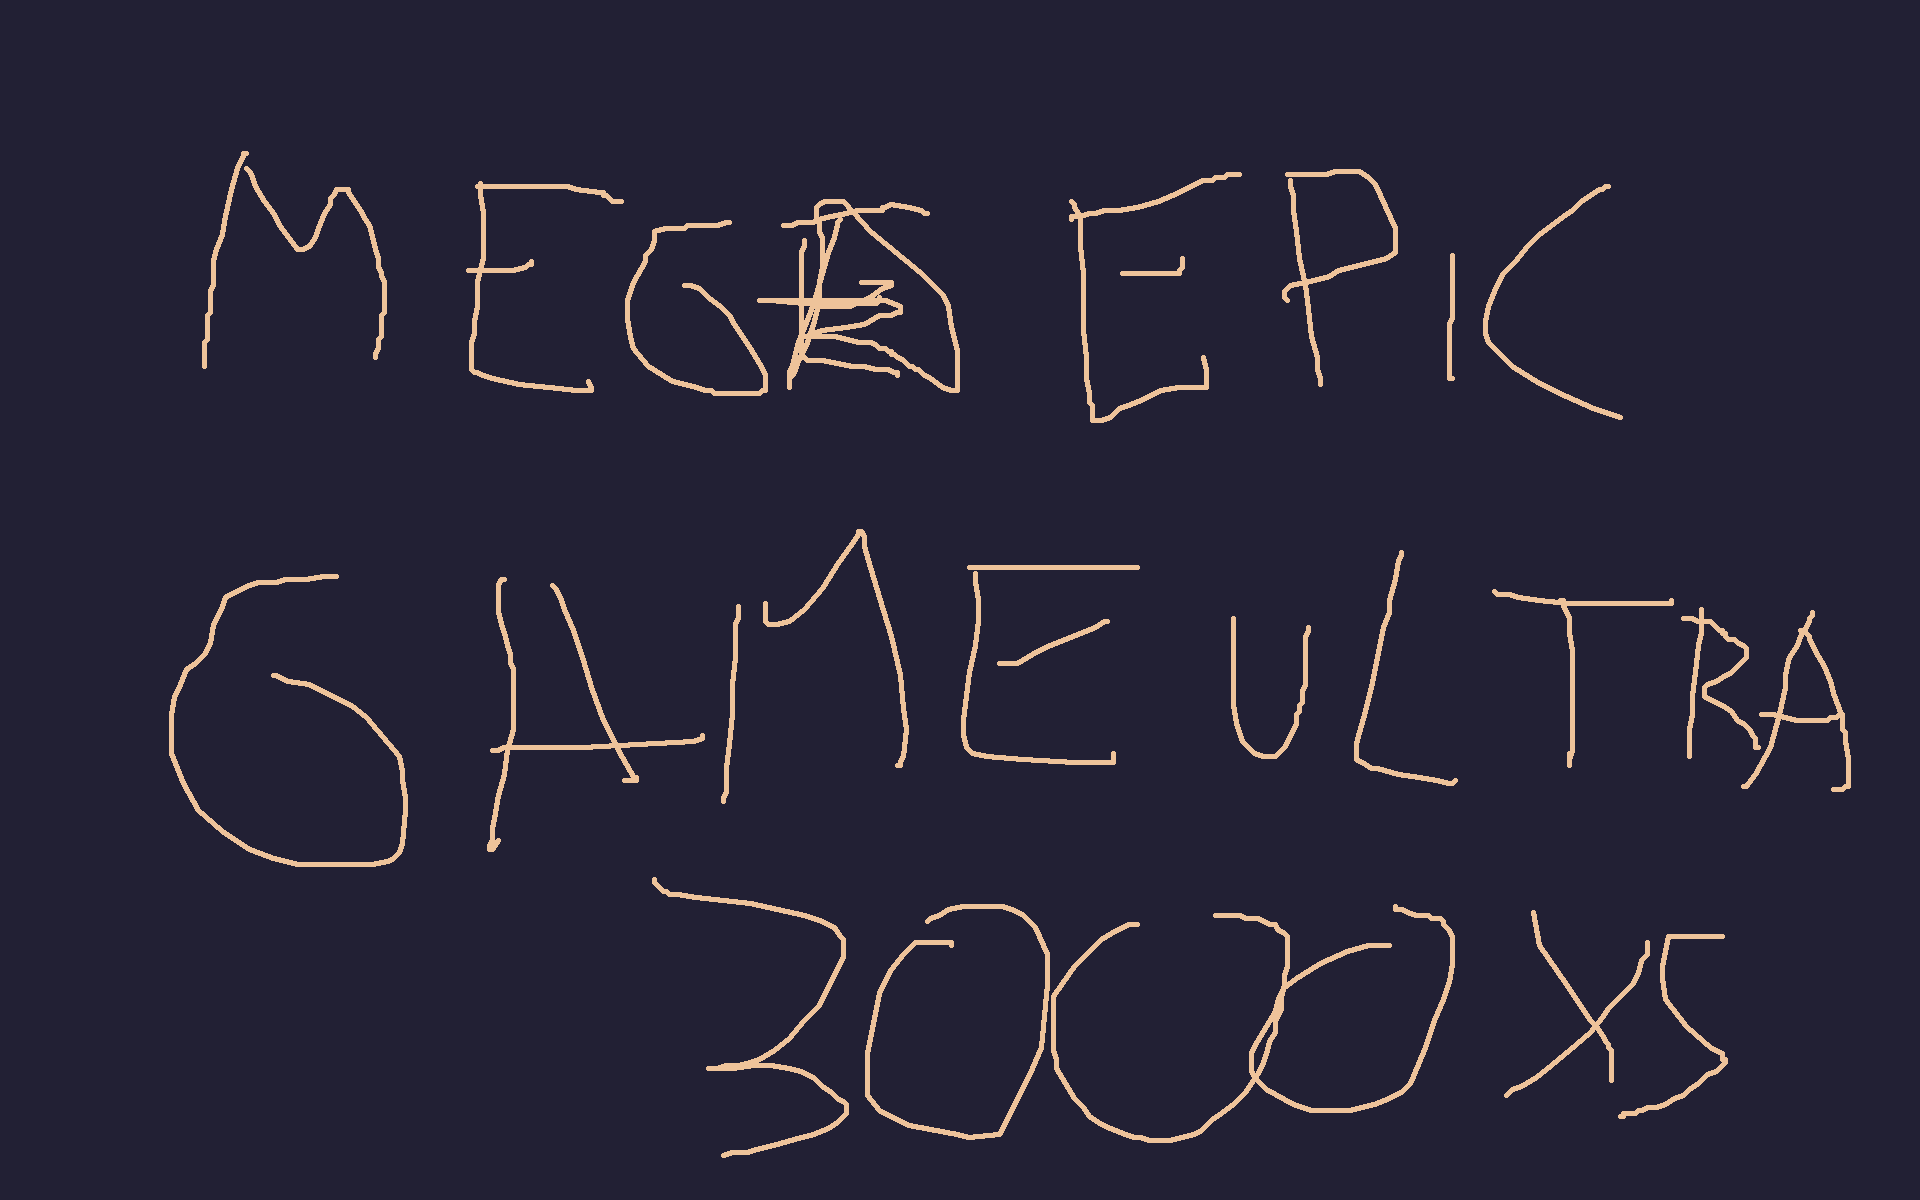 MEGA EPIC
GAME ULTRA
3000 XS